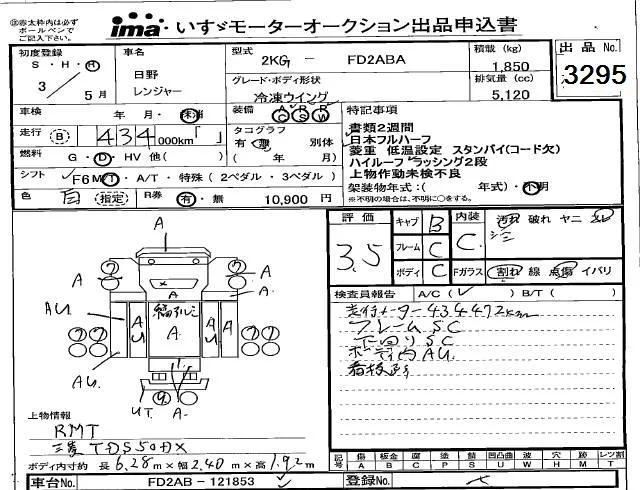 ※赤太枠内は必ず
ボールペンで
ご記入下さい。
ima いすゞモーターオークション出品申込書
初度登録
S・H・R
3年 5月
車名
日野
レンジャー
型式
2KG － FD2ABA
グレード・ボディ形状
冷凍ウイング
積載 (kg)
1,850
排気量 (cc)
5,120
出品 No.
3295
車検 年・月・抹消
走行 B 434 000km「 」
燃料 G・D・HV 他( )
シフト F6 M/T・A/T・特殊 (2ペダル・3ペダル)
色 白 (指定)
R券 有・無 10,900 円
装備 AC PS RW
タコグラフ
有・無 別体
( 年/ 月)
特記事項
書類2週間
日本フルハーフ
菱重 低温設定 スタンバイ(コード欠)
ハイルーフ ラッシング2段
上物作動未検不良
架装物年式：( 年式)・不明
※不明の場合は、不明に○をする。
評価 3.5
キャブ B
フレーム C
ボディ C
内装 C
汚れ 破れ ヤニ
シミ
Fガラス 割れ 線 点傷 イバリ
検査員報告 A/C( ✓ ) B/T( )
走行メーター434472km
フレームSC
下回りSC
ボディ内AU.
看板跡
A
A A
A
A A
AU A U A U AU
縞アルミ
A
AU. AU.
UT. A-
上物情報
RMT
三菱 TDS50DX
ボディ内寸約 長 6.28m×幅 2.40m×高 1.92m
記号 傷 板金 腐 塗 錆 凹凸曲 波 穴 跡 レツ割
A B C P S U W H M T
車台No. FD2AB－121853
登録No.